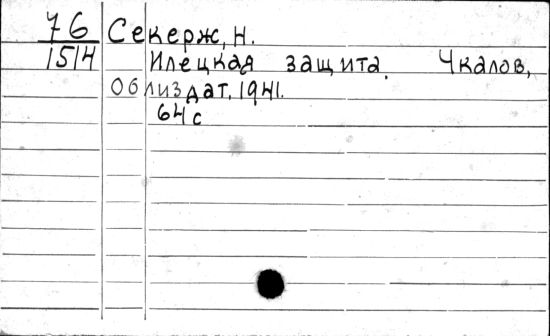 76 Секерж, Н.
1514 Илецкая защита. Чкалов,
Облиздат, 1941.
64 с